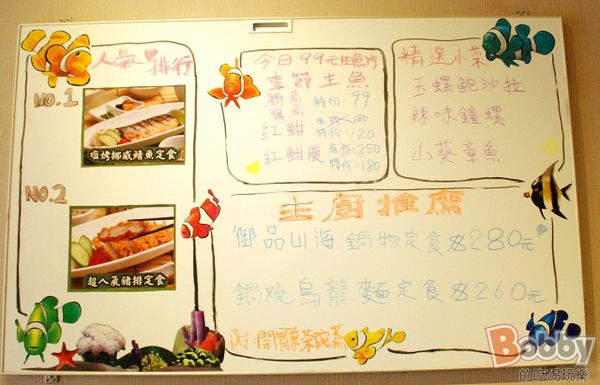 人氣排行
NO.1
鹽烤挪威鯖魚定食
NO.2
超人氣豬排定食
今日99元生魚片
季節生魚
鮪魚 特價:99
旗魚 原價:180
紅魽 特價:120
紅魽腹 原價:250
特價:180
精選小菜
玉螺鮑沙拉
辣味鐘螺
山葵章魚
主廚推薦
御品山海鍋物定食$280元
鍋燒烏龍麵定食$260元
附:開胃菜.茶碗蒸
Bobby
的吃喝玩樂